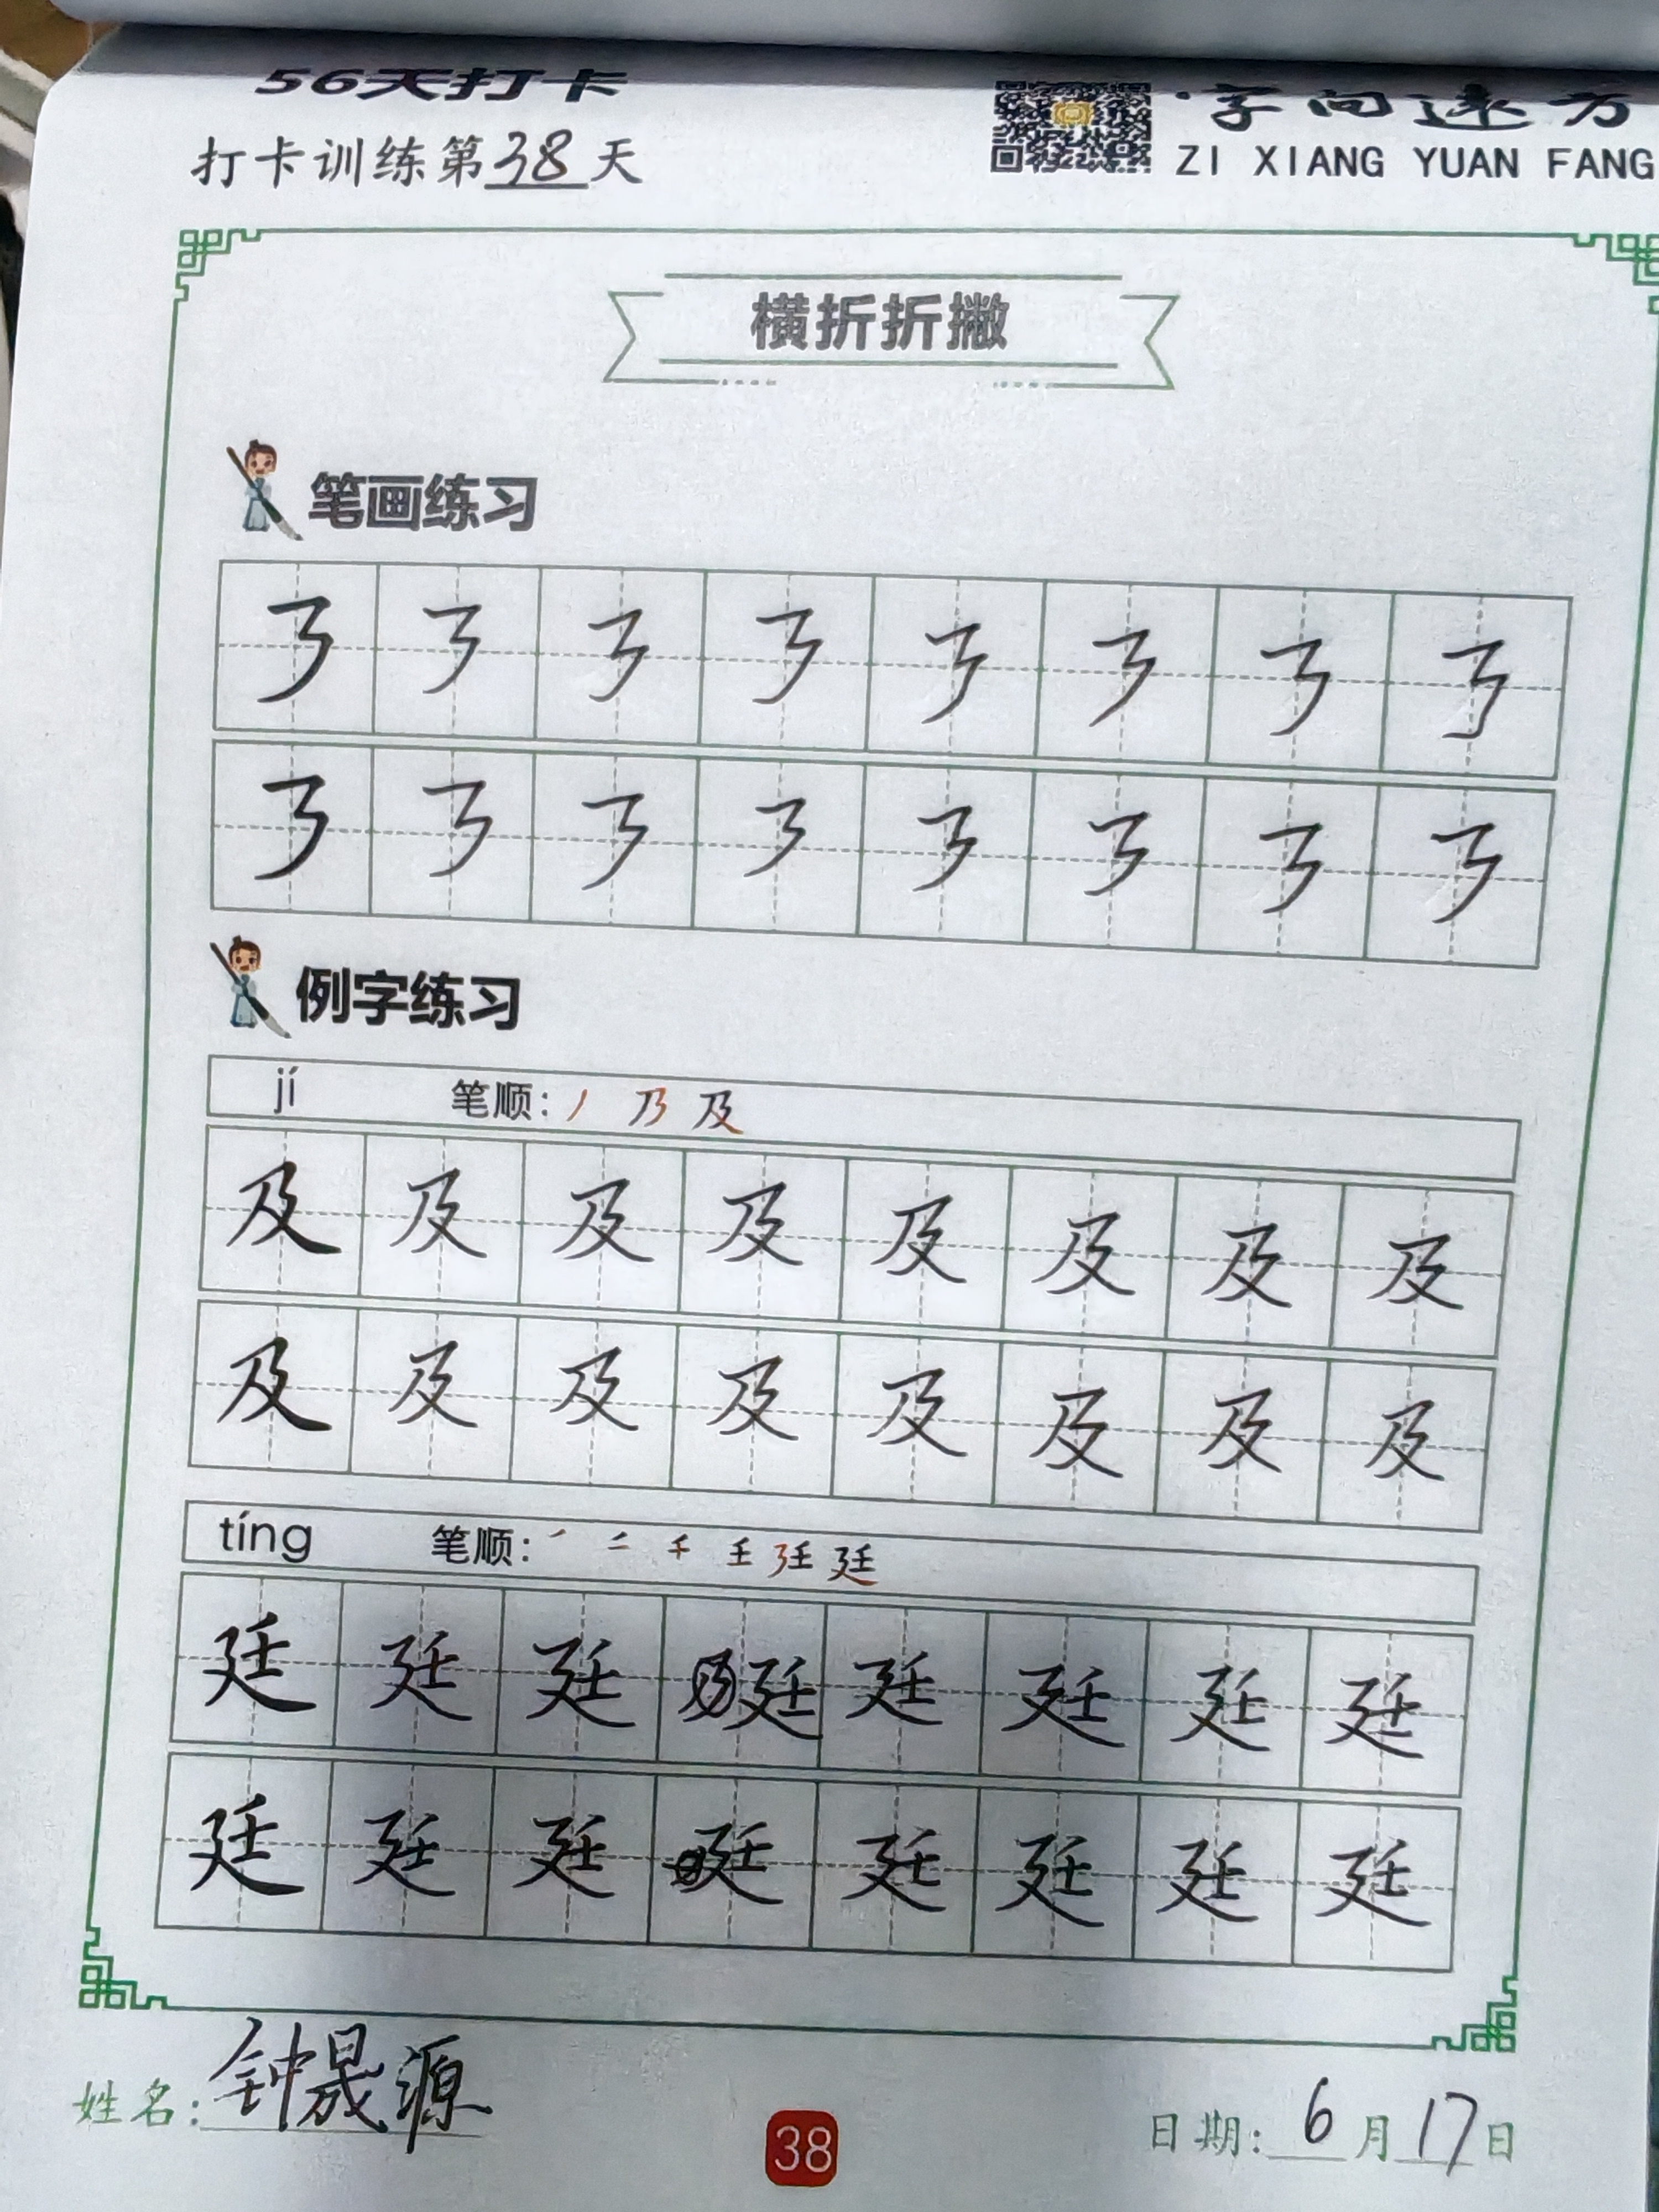 56天打卡
字向远方
打卡训练第38天
ZI XIANG YUAN FANG
横折折撇
笔画练习
例字练习
jí 笔顺: 丿 乃 及
及 及 及 及 及 及 及 及
及 及 及 及 及 及 及 及
tíng 笔顺: 廷
廷 廷 廷 廷 廷 廷 廷 廷
廷 廷 廷 廷 廷 廷 廷 廷
姓名: 钟晟源
38
日期: 6月17日